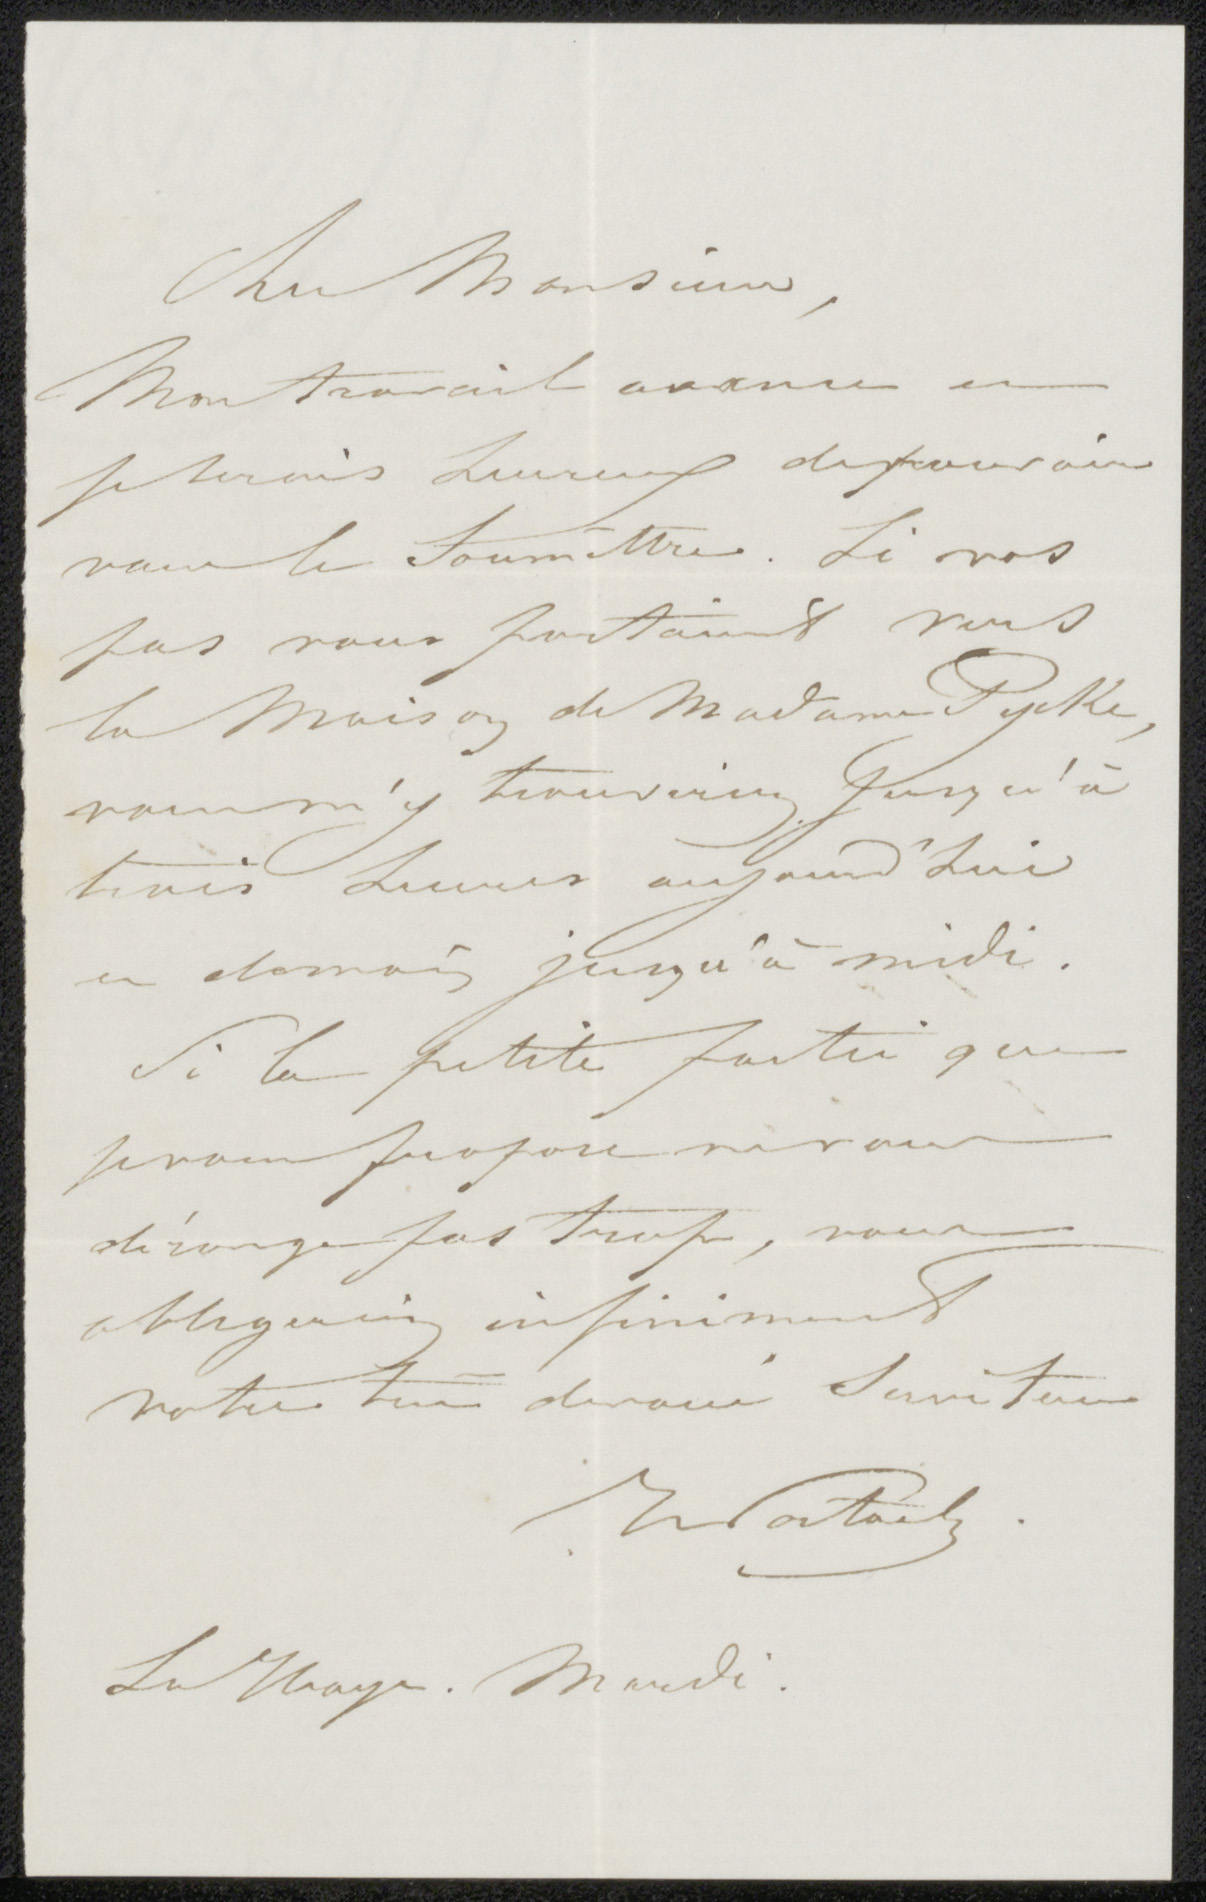 Cher Monsieur,
Mon travail avance et
je serais heureux de pouvoir
vous le soumettre. Si vos
pas vous portaient vers
la Maison de Madame Pycke,
vous m'y trouveriez jusqu'à
trois heures aujourd'hui
et demain jusqu'à midi.
Si la petite partie que
je vous propose ne vous
dérange pas trop, vous
obligeriez infiniment
votre très dévoué Serviteur
Portaels.
La Haye. Mardi.